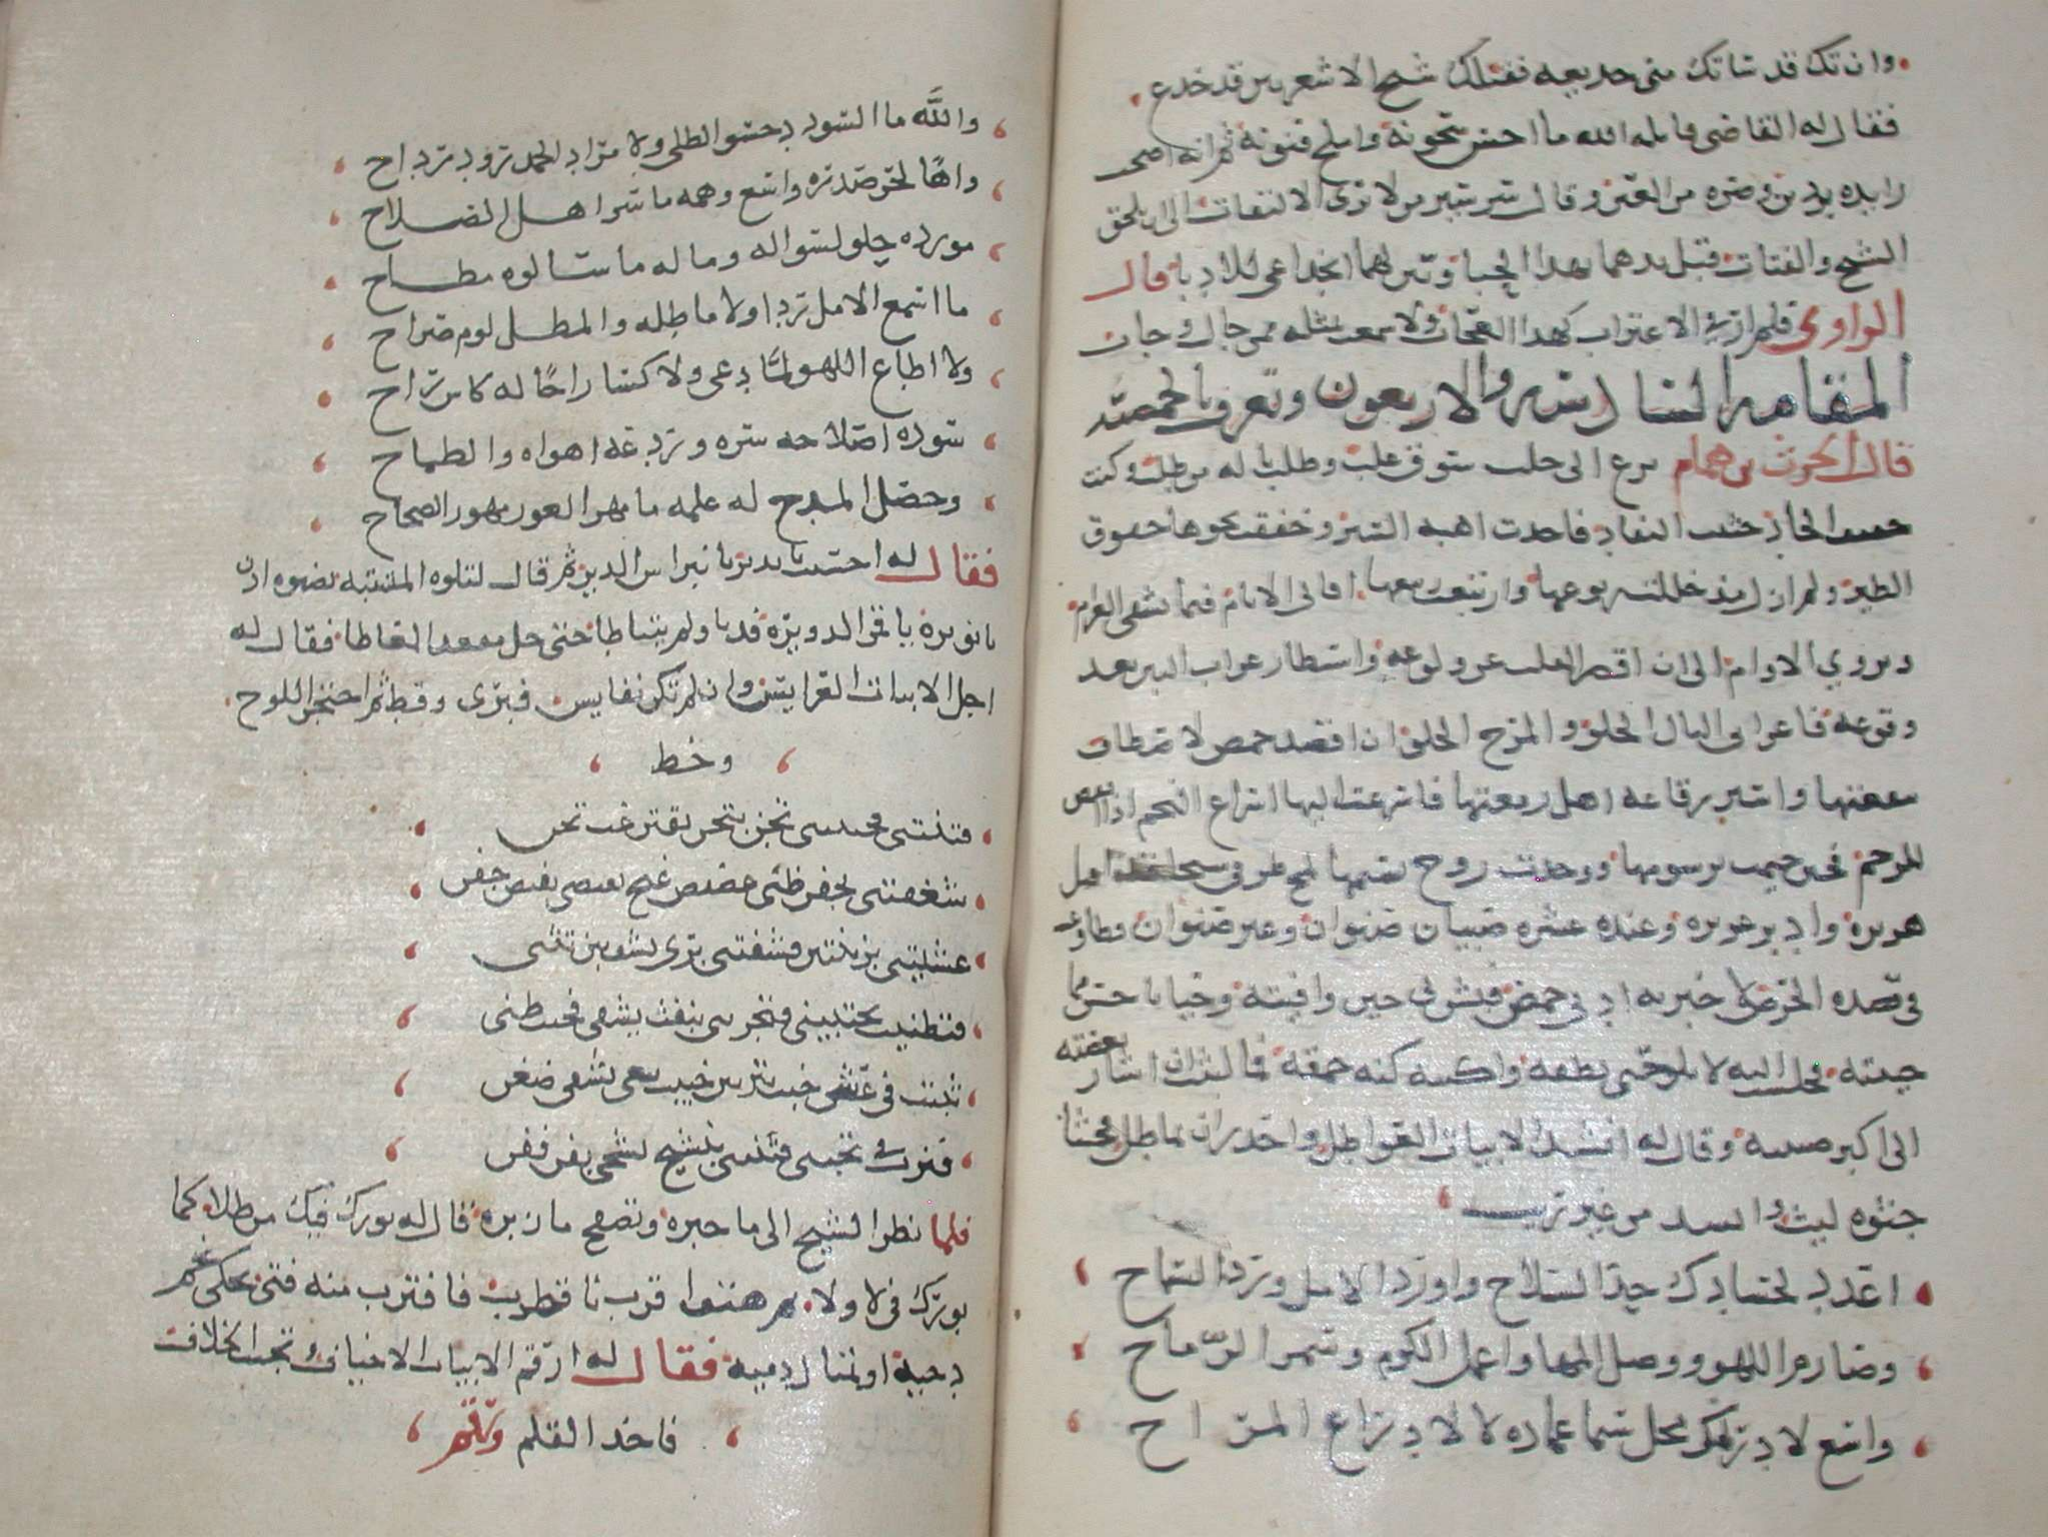 وان تك قد ساتك منى خديعه فقبلك شيخ الاشعريين قد خدع
فقال له القاضى قاتله الله ما احسن شجونه واملح فنونه ثم انه اصحب
رايده بردين وصره من العين وقال سر سير من لا يرى الالتفات الى ان تلحق
الشيخ والفتات فبل يدهما بهذا الحبا وبين لهما انخداعى للادبا قال
الراوى فلم ار فى الاغتراب كهذا العجاب ولا سمعت بمثله ممن جال وجاب
المقامه السادسه والاربعون وتعرف بالحمصيه
قال الحرث بن همام نزع الى حلب شوق غلب وطلب يا له من طلب وكنت
خفيف الحاذ حثيث النفاذ فاخذت اهبه السير وخففت نحوها خفوق
الطير ولم ازل مذ حللت ربوعها وارتبعت ربيعها افانى الايام فيما يشفى الغرام
ويروي الاوام الى ان اقصر القلب عن ولوعه واستطار غراب البين بعد
وقوعه فاغرانى البال الخلو والمرح الحلو ان اقصد حمص لاصطاف
ببقعتها واسبر رقاعه اهل رقعتها فاسرعت اليها اسراع النجم اذا انقض
للرجم فحين خيمت برسومها ووجدت روح نسيمها لمح طرفى شيخا قد اقبل
هريره وادبر غريره وعنده عشره صبيان صنوان وغير صنوان فطاوعت
فى قصده الحرص لاخبر به ادبا حمص فبش بى حين وافيته وحيا باحسن مما
حييته فجلست اليه لابلو جنى نطقه واكتنه كنه حمقه فما لبث ان اشار بعصيته
الى اكبر اصيبيه وقال له انشد الابيات العواطل واحذر ان تماطل فجثا
جثوه ليث وانشد من غير تريث
اعدد لحسادك حد السلاح واورد الامل ورد السماح
وصارم اللهو ووصل المها واعمل الكوم وسمر الرماح
واسع لادراك محل سما عماده لا لادراع المراح
والله ما السودد حسو الطلى ولا مراد الحمد رود رداح
واها لحر صدره واسع وهمه ما سر اهل الصلاح
مورده حلو لسواله وماله ما سالوه مطاح
ما اسمع الامل ردا ولا ماطله والمطل لوم صراح
ولا اطاع اللهو لما دعى ولا كسا راحا له كاس راح
سوده اصلاحه سره وردعه اهواه والطماح
وحصل المدح له علمه ما مهر العور مهور الصحاح
فقال له احسنت يا بدير يا راس الدير ثم قال لتلوه المشتبه بصنوه ادن
يا نويره يا قمر الدويره فدنا ولم يتباطا حتى حل مقعد المعاطا فقال له
اجل الابيات العرايس وان لم تكن نفايس فبرى القلم وقط ثم احتجر اللوح
وخط
فتنتنى فجننتنى تجنى بتجن يفتن غب تجنى
شغفتنى بجفن ظبى غضيض غنج يقتضى تفيض جفنى
غشيتنى بزينتين فشفتنى بزى يشف بين تثنى
فتظنيت تجتبينى فتجزينى بنفث يشفى فخيب ظنى
ثبتت فى غش جيب بتزيين خبيث يبغى تشفى ضغن
فنزت فى تجنبى فثنتنى بنشيج يشجى بفن ففن
فلما نظر الشيخ الى ما حبره وتصفح ما زبره قال له بورك فيك من طلا كما
بورك فى لا ولا ثم هتف اقرب يا قطرب فاقترب منه فتى يحكى نجم
دجيه او تمثال دميه فقال له ارقم الابيات الاخياف وتجنب الخلاف
فاخذ القلم ورقم